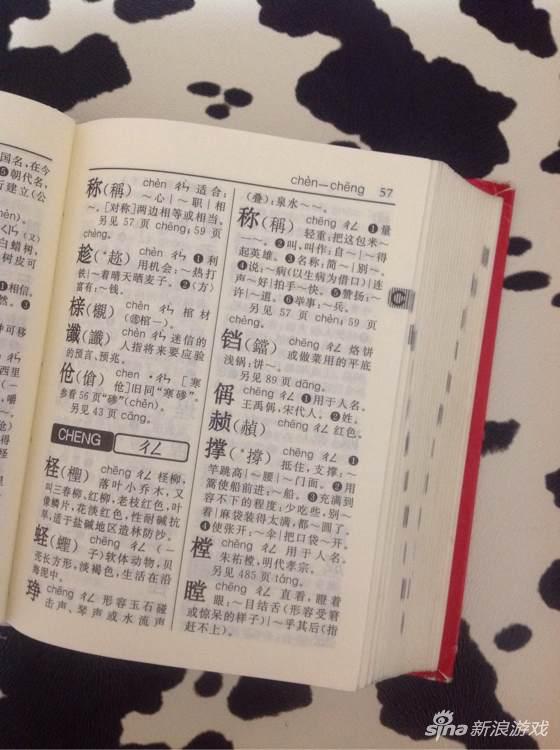 国名,在今
❺朝代名,
建立(公
(又
白蜡树,
树皮可
❶相信。
chèn—chēng 57
称(稱) chèn ㄔㄣˋ 适合:
~心|~职|相
~。[对称]两边相等或相当。
另见57页chēng;59
页chèng。
趁(*趂) chèn ㄔㄣˋ ❶利
用机会:~热打
铁|~着晴天晒麦子。❷〈方〉
富有:~钱。
榇(櫬) chèn ㄔㄣˋ 棺材
(㊣棺—)。
谶(讖) chèn ㄔㄣˋ 迷信的
人指将来要应验
的预言、预兆。
伧(傖) chen ·ㄔㄣ [寒
伧]旧同“寒碜”。
参看56页“碜”(chěn)。
另见43页cāng。
CHENG ㄔㄥ
柽(檉) chēng ㄔㄥ 柽柳,
落叶小乔木,又
叫三春柳、红柳,老枝红色,叶
像鳞片,花淡红色,性耐碱抗
旱,适于盐碱地区造林防沙。
蛏(蟶) chēng ㄔㄥ (—
子)软体动物,贝
壳长方形,淡褐色,生活在沿
海泥中。
琤 chēng ㄔㄥ 形容玉石碰
击声、琴声或水流声
(叠):泉水~~。
称(稱) chēng ㄔㄥ ❶量
轻重:把这包米~
一~。❷叫,叫作:自~|~得
起英雄。❸名称:简~|别~。
❹说:~病(以生病为借口)|连
声~好|拍手~快。❺赞扬:~
许|~道。❻举事:~兵。
另见57页chèn;59页
chèng。
铛(鐺) chēng ㄔㄥ 烙饼
或做菜用的平底
浅锅:饼~。
另见89页dāng。
偁 chēng ㄔㄥ ❶用于人名。
王禹偁,宋代人。❷姓。
赪(赬) chēng ㄔㄥ 红色。
撑(*撐) chēng ㄔㄥ ❶
抵住,支撑:~
竿跳高|~腰|~门面。❷用
篙使船前进:~船。❸充满到
容不下的程度:少吃些,别~
着|麻袋装得太满,都~圆了。
❹使张开:~伞|把口袋~开。
樘 chēng ㄔㄥ 用于人名。
朱祐樘,明代孝宗。
另见485页táng。
瞠 chēng ㄔㄥ 直看,瞪着
眼:~目结舌(形容受窘
或惊呆的样子)|~乎其后(指
赶不上)。
C
sina新浪游戏